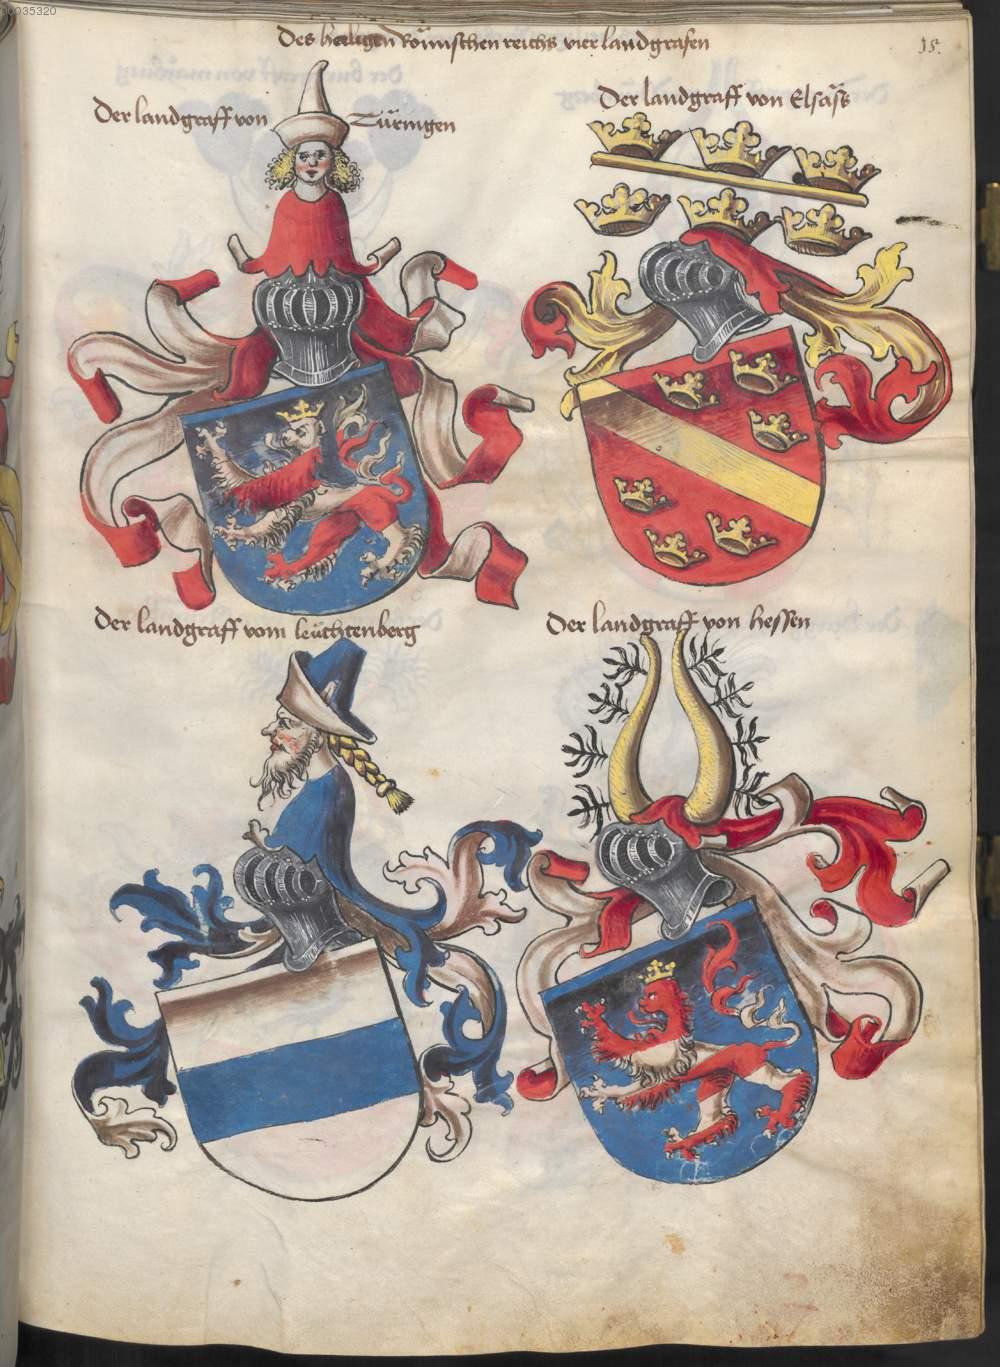 00035320
Des heiligen Römischen reichs vier landgrafen
15.
Der landgraff von Türingen
Der landgraff von Elsäss
Der landgraff vom leüchtenberg
Der landgraff von hessen